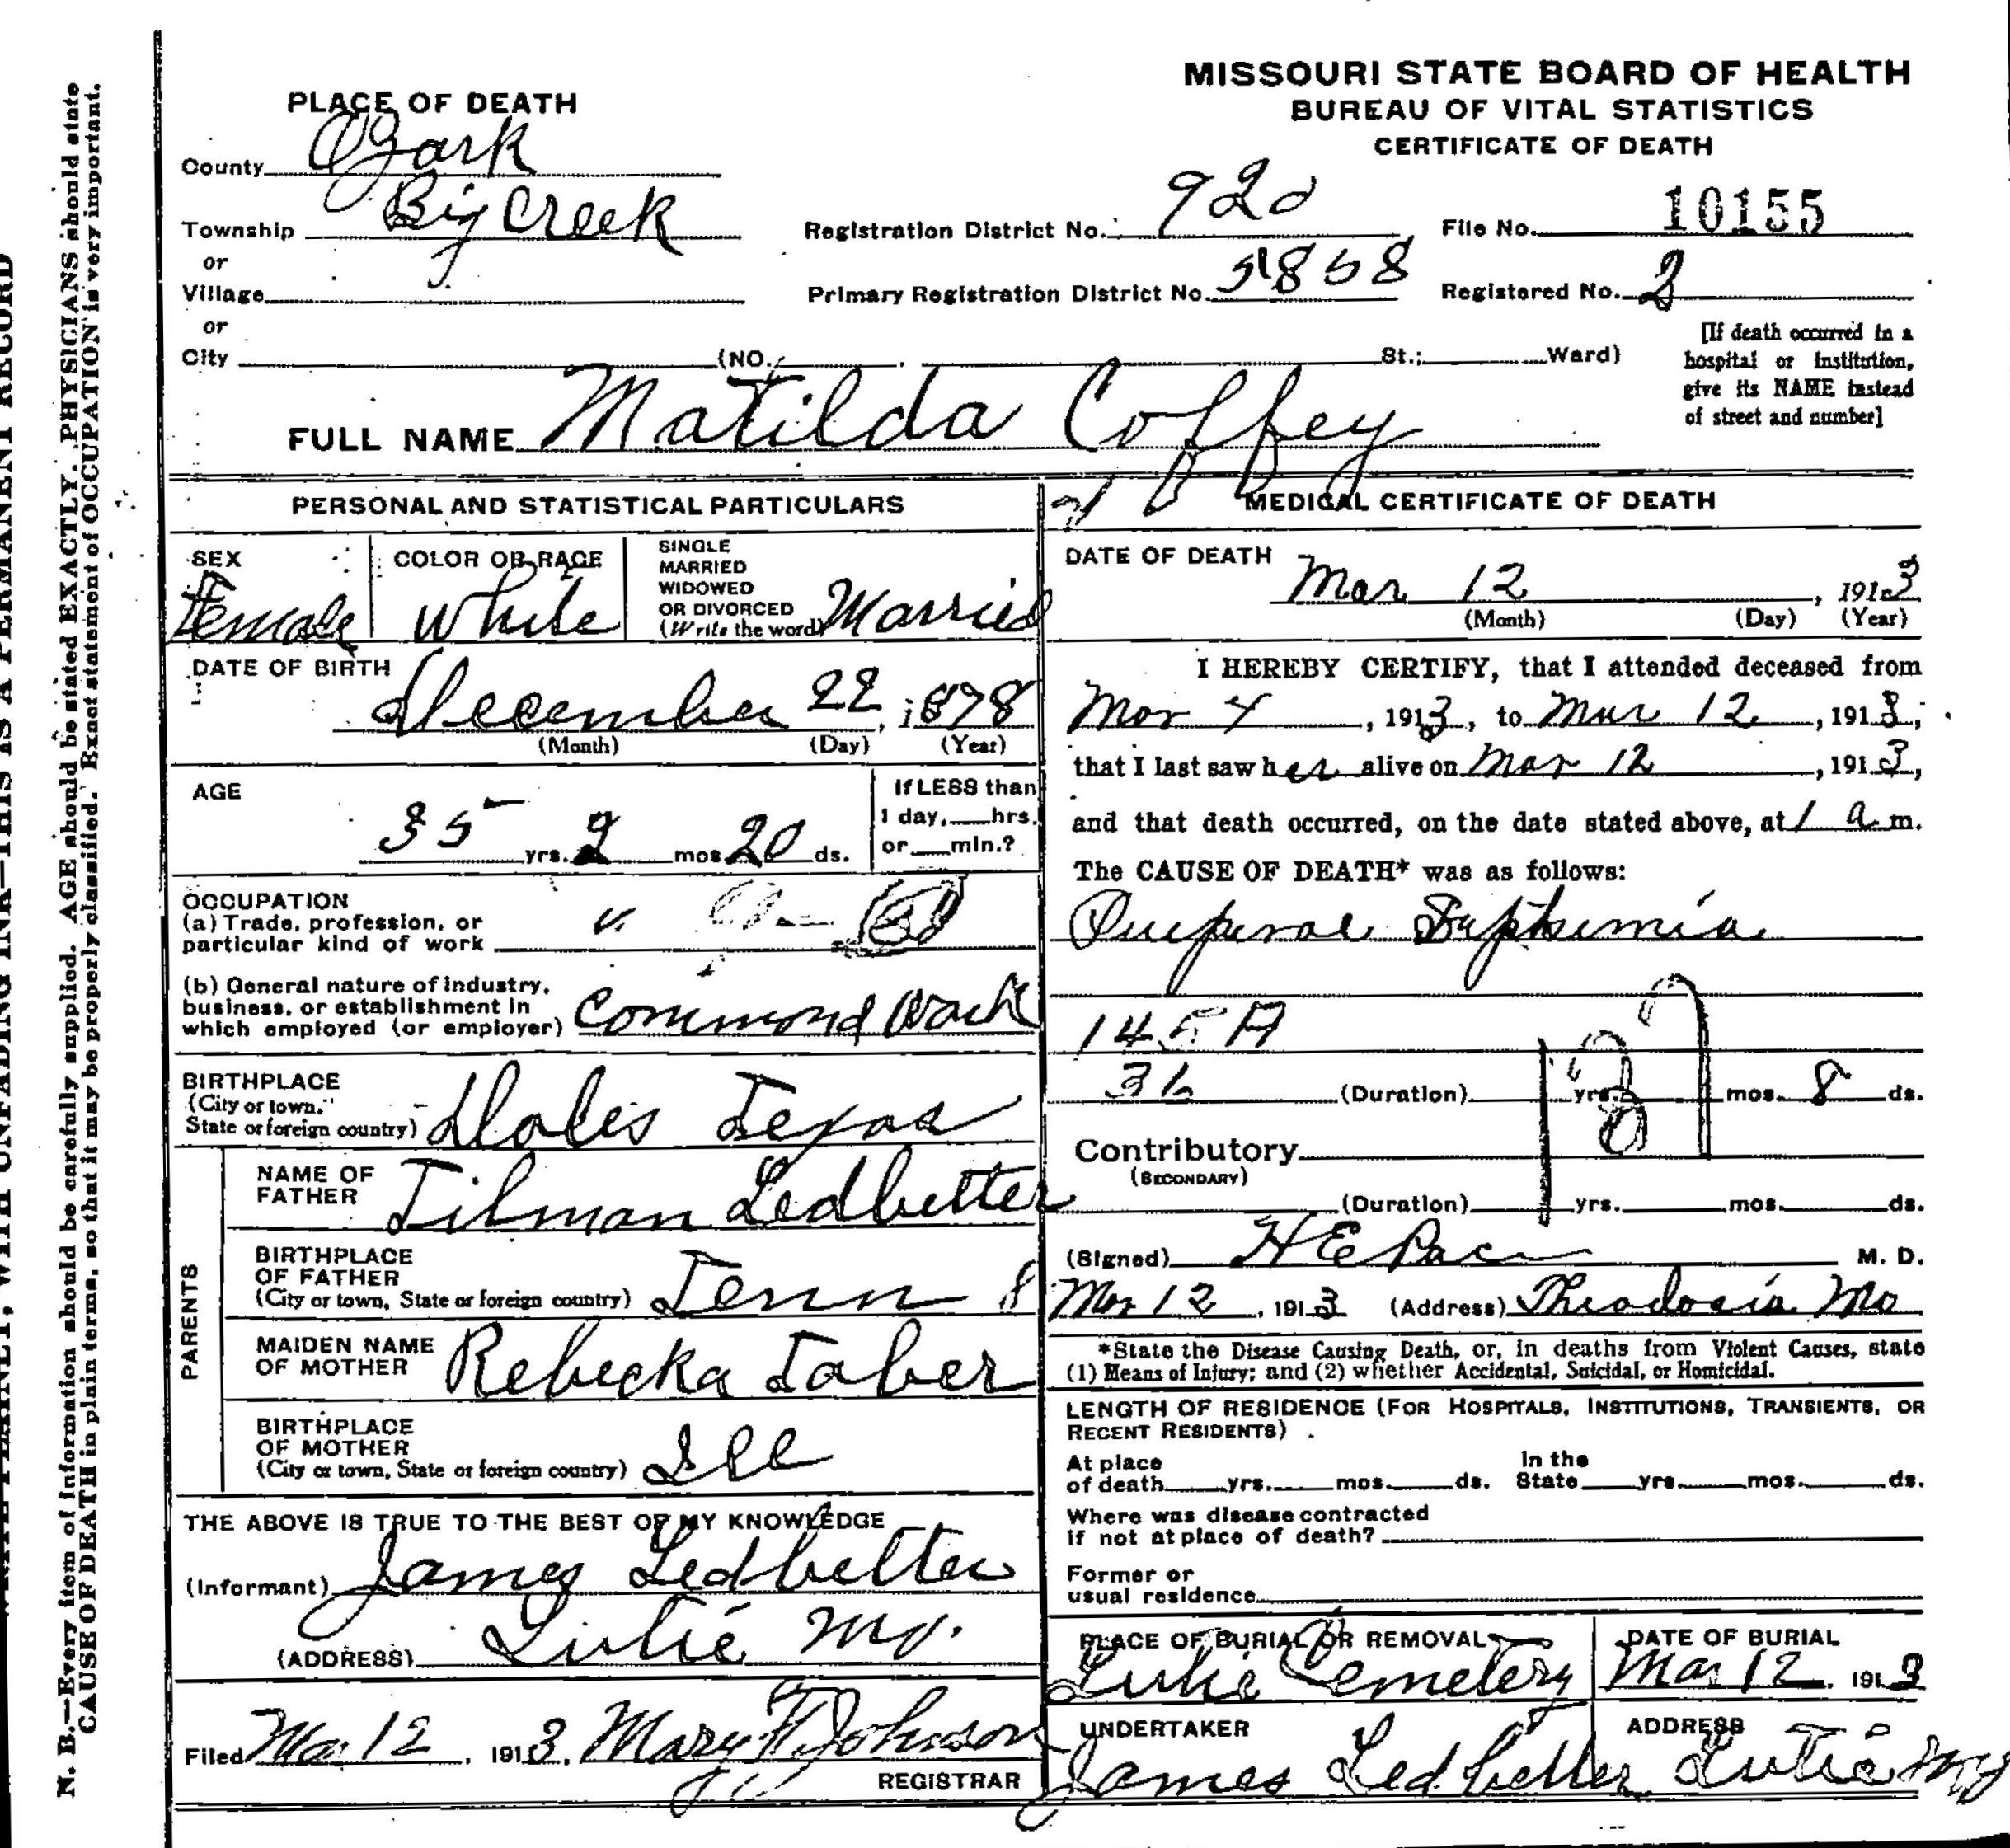 MISSOURI STATE BOARD OF HEALTH
BUREAU OF VITAL STATISTICS
CERTIFICATE OF DEATH
PLACE OF DEATH
County Ozark
Township Big Creek
or
Village
or
City (NO. St.; Ward)
Registration District No. 920
File No. 10155
Primary Registration District No. 5858
Registered No. 2
[If death occurred in a
hospital or institution,
give its NAME instead
of street and number]
FULL NAME Matilda Coffey
PERSONAL AND STATISTICAL PARTICULARS
SEX
Female
COLOR OR RACE
White
SINGLE
MARRIED
WIDOWED
OR DIVORCED
(Write the word) Married
DATE OF BIRTH
December 22, 1878
(Month) (Day) (Year)
AGE
35 yrs. 2 mos 20 ds.
If LESS than
1 day, hrs.
or min.?
OCCUPATION
(a) Trade, profession, or
particular kind of work
(b) General nature of industry,
business, or establishment in
which employed (or employer) Commond Work
BIRTHPLACE
(City or town,
State or foreign country) Dales Texas
PARENTS
NAME OF
FATHER Tilman Ledbetter
BIRTHPLACE
OF FATHER
(City or town, State or foreign country) Tenn
MAIDEN NAME
OF MOTHER Rebecka Taber
BIRTHPLACE
OF MOTHER
(City or town, State or foreign country) Ill
THE ABOVE IS TRUE TO THE BEST OF MY KNOWLEDGE
(Informant) James Ledbetter
(ADDRESS) Lutie Mo.
Filed Mar 12, 1913, Mary F. Johnson
REGISTRAR
MEDICAL CERTIFICATE OF DEATH
DATE OF DEATH
Mar 12, 1913
(Month) (Day) (Year)
I HEREBY CERTIFY, that I attended deceased from
Mar 4, 1913, to Mar 12, 1913,
that I last saw her alive on Mar 12, 1913,
and that death occurred, on the date stated above, at 1 a.m.
The CAUSE OF DEATH* was as follows:
Pueperal Septhemia
145A
36 (Duration) yrs. mos. 8 ds.
Contributory
(SECONDARY)
(Duration) yrs. mos. ds.
(Signed) H E M. D.
Mar 12, 1913 (Address) Theodosia Mo
*State the Disease Causing Death, or, in deaths from Violent Causes, state
(1) Means of Injury; and (2) whether Accidental, Suicidal, or Homicidal.
LENGTH OF RESIDENCE (FOR HOSPITALS, INSTITUTIONS, TRANSIENTS, OR
RECENT RESIDENTS)
At place
of death yrs. mos. ds.
In the
State yrs. mos. ds.
Where was disease contracted
if not at place of death?
Former or
usual residence
PLACE OF BURIAL OR REMOVAL
Lutie Cemetery
DATE OF BURIAL
Mar 12, 1913
UNDERTAKER
James Ledbetter
ADDRESS
Lutie Mo
N. B.—Every item of information should be carefully supplied. AGE should be stated EXACTLY. PHYSICIANS should state
CAUSE OF DEATH in plain terms, so that it may be properly classified. Exact statement of OCCUPATION is very important.
WITH UNFADING INK—THIS IS A PERMANENT RECORD